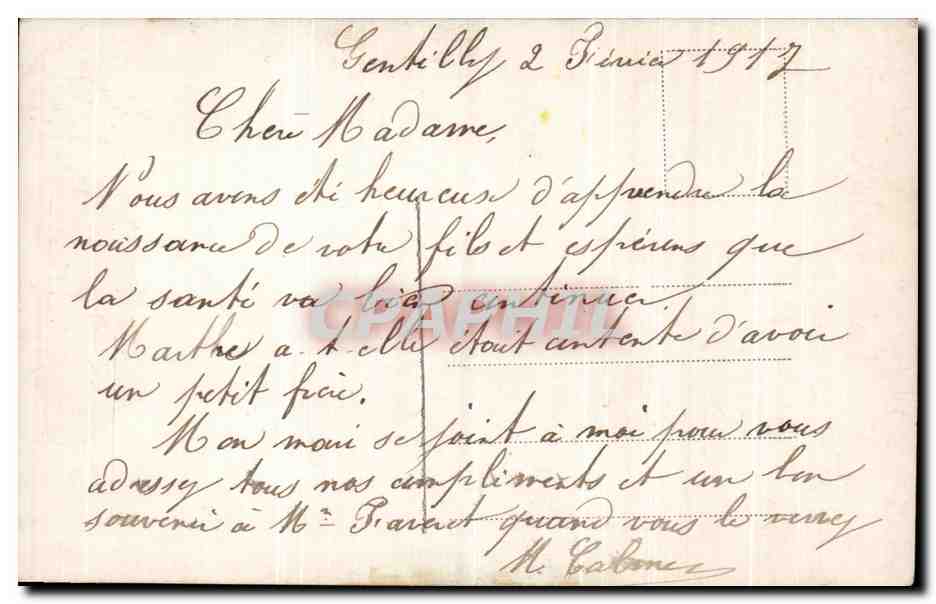 Gentilly 2 Février 1917
Chère Madame,
Nous avons été heureuse d'apprendre la
naissance de votre fils et espérons que
la santé va bien continuer
CPAPHIL
Marthe a-t-elle était contente d'avoir
un petit frère.
Mon mari se joint à moi pour vous
adressez tous nos compliments et un bon
souvenir à Mr quand vous le verrez
M.